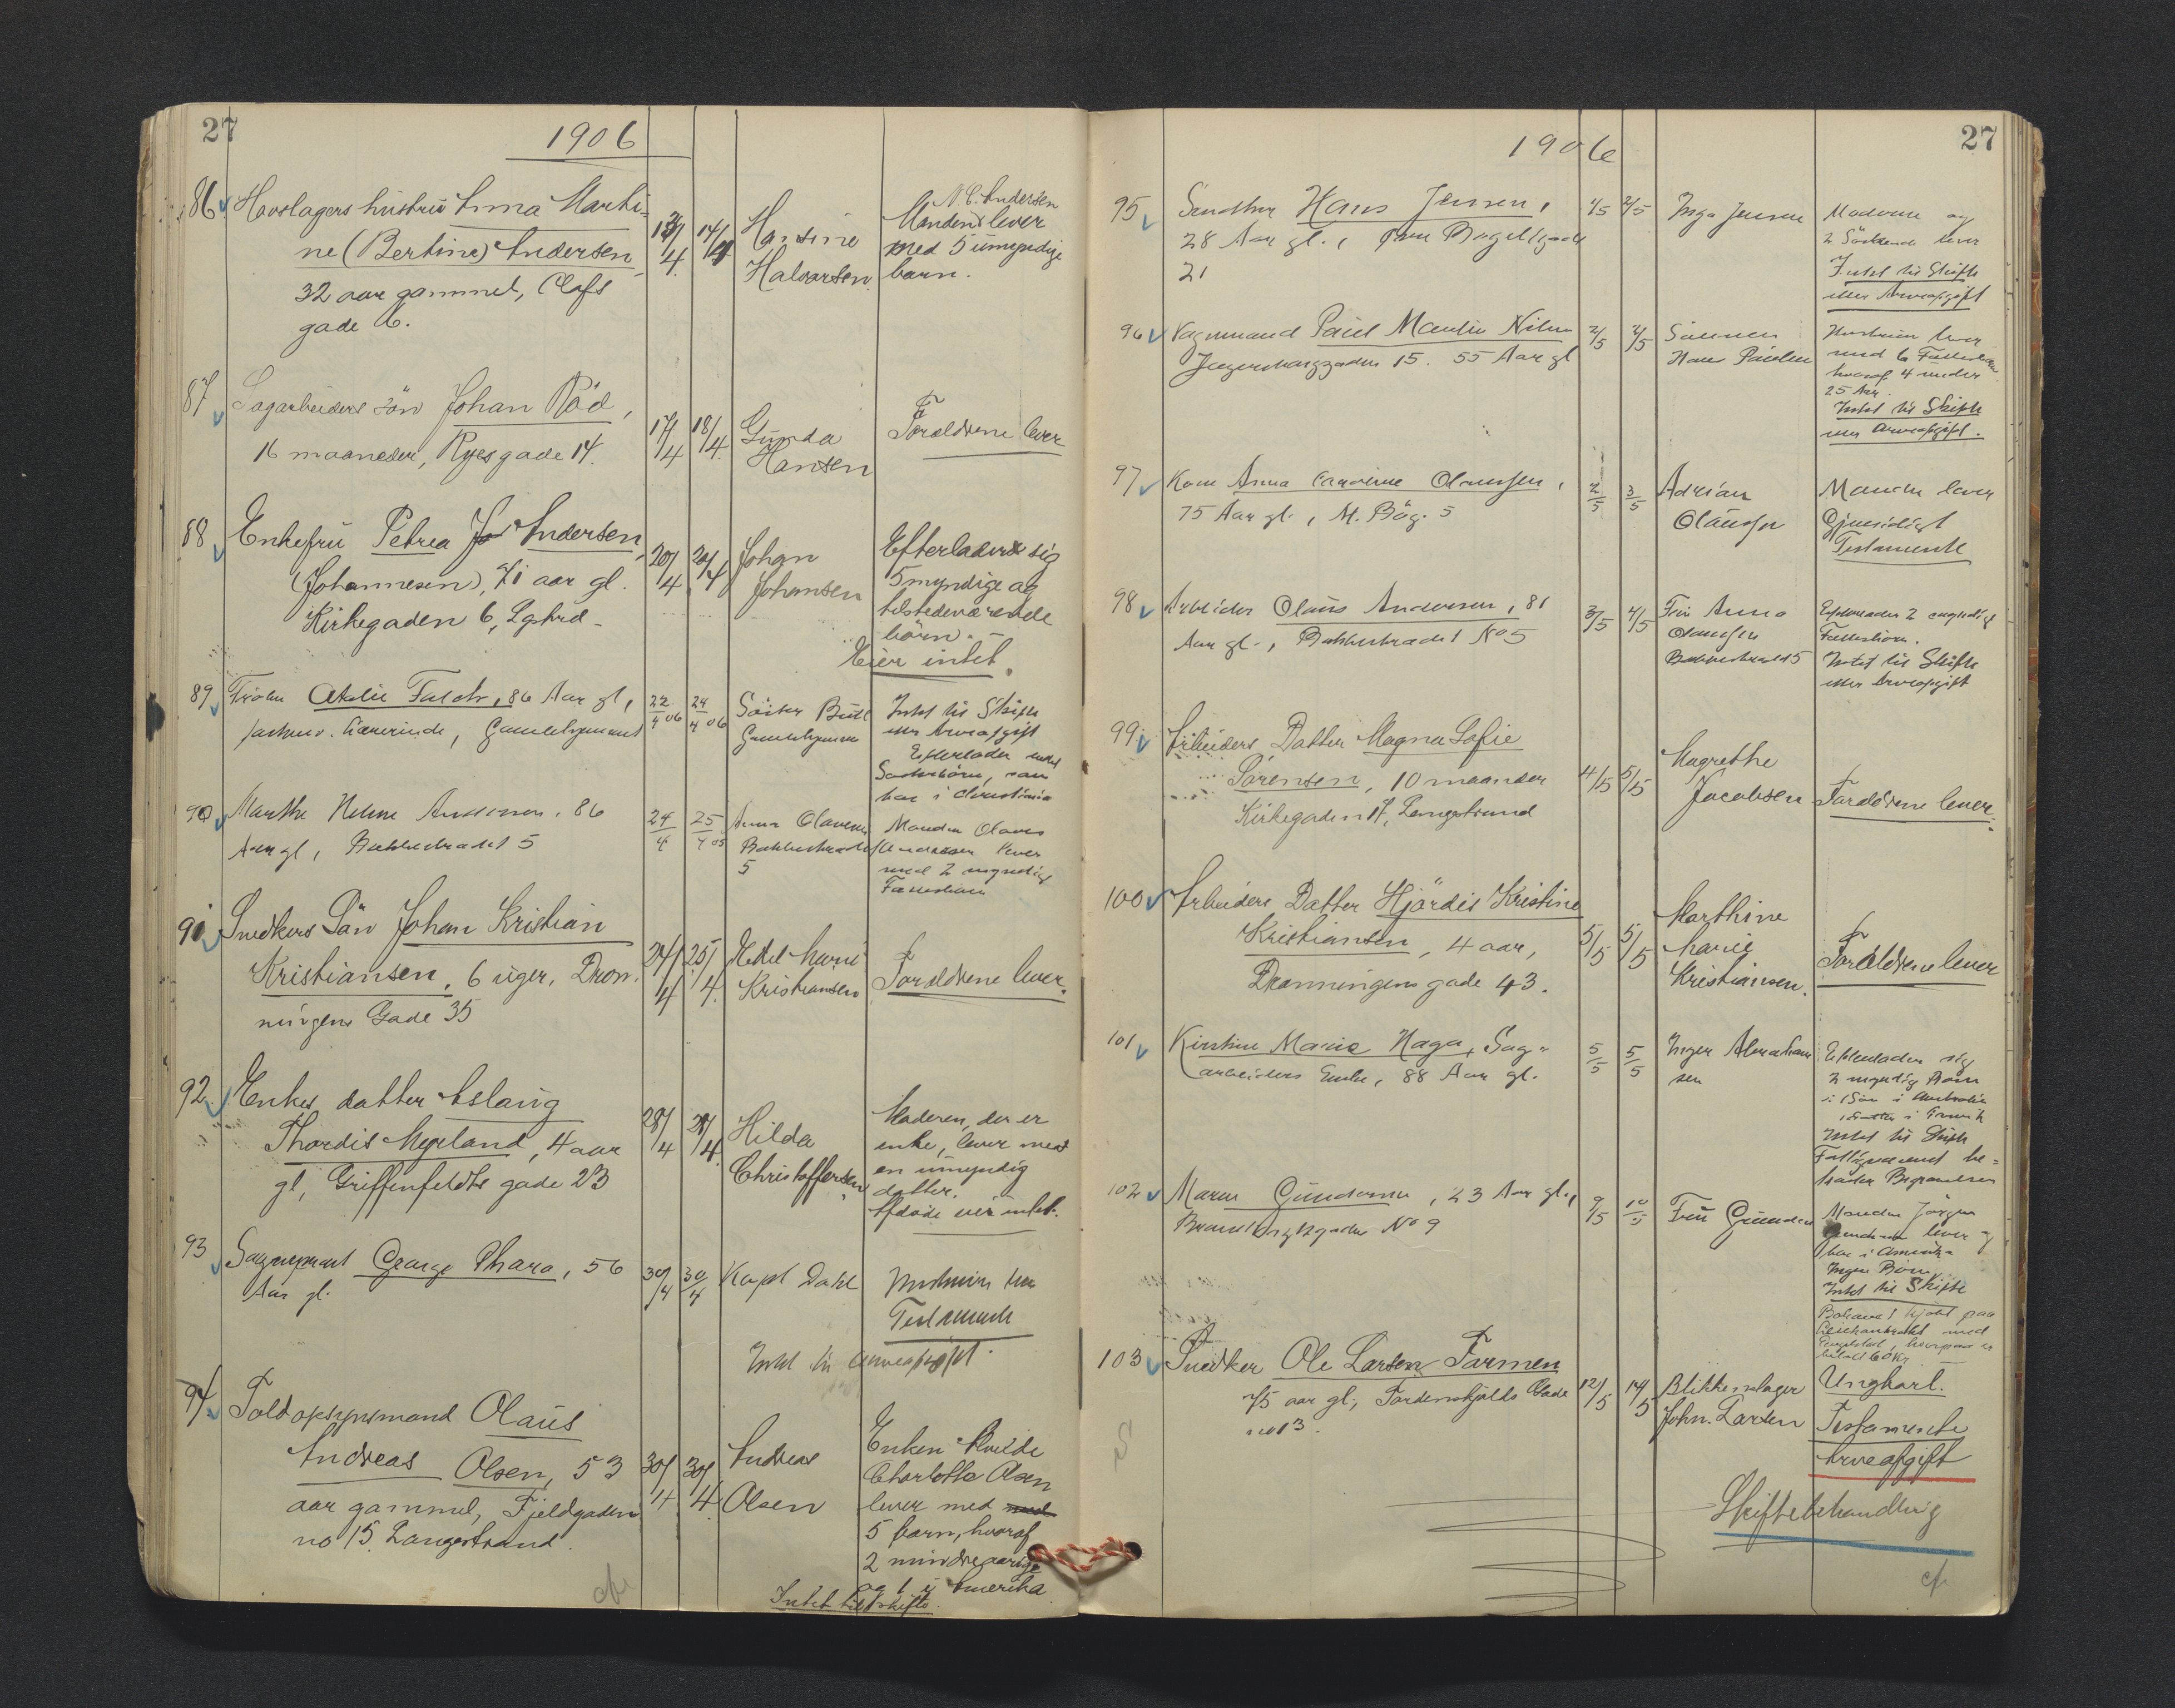 27
1906
86 Hovslagers hustru Anna Marti-
ne (Bertine) Andersen
32 aar gammel, Olafs
gade 6.
13/4 14/4
Hansine
Halvorsen
N. C. Andersen
Manden lever
med 5 umyndige
barn.
87 Sagarbeiders sön Johan Röd,
16 maaneder, Ryesgade 14.
17/4 18/4
Gunda
Hansen
Forældrene lever
88 Enkefru Petrea Andersen
(Johannesen), 71 aar gl.
Kirkegaden 6, Lgstrd.
20/4 20/4
Johan
Johansen
Efterlader sig
5 myndige og
tilstedeværende
börn.
Eier intet.
89 Fröken Falch, 86 Aar gl,
Lærerinde, Gamlehjemmet
22/4 06 24/4 06
Söster Budt
Gamlehjemmet
Intet til Skifte
eller Arveafgift
Efterlader
Søsterbörn, som
bor i Christiania
90 Marthe Helene Andersen, 86
Aar gl, Bakkestrædet 5
24/4 25/4 05
Anna Olavesen
Bakkestrædet
5
Manden Olaves
Andersen lever
med 2 myndige
Fællesbarn
91 Snedkers Sön Johan Kristian
Kristiansen, 6 uger, Dron-
ningens Gade 35
24/4 25/4
Hedel Marie
Kristiansen
Forældrene lever.
92 Enkes datter Aslaug
Thordis Myrland, 4 aar
gl, Griffenfeldts gade 23
28/4 28/4
Hilda
Christoffersen
Moderen, der er
enke, lever med
en umyndig
datter.
Afdøde eier intet.
93 George Thara, 56
Aar gl.
30/4 30/4
Kapt Dahl
Hustruen har
Testamente
Intet til Arveafgift.
94 Toldopsynsmand Olaus
Andreas Olsen, 53
aar gammel, Fjeldgaden
no 15. Langestrand.
30/4 30/4
Andreas
Olsen
Enken Hulde
Charlotte Olsen
lever med
5 barn, hvoraf
2 mindreaarige
og 1 i Amerika
Intet til skifte.
27
1906
95 Hans Jensen,
28 Aar gl.,
21
2/5
Inga Jensen
Moderen og
2 Söskende lever
Intet til Skifte
eller Arveafgift
96 Vognmand Paul Martin Nilsen
Jegersborggaden 15. 55 Aar gl
2/5 2/5
Sönnen
Hans Paulsen
Hustruen lever
med 6 Fællesbarn
hvoraf 4 under
25 Aar.
Intet til Skifte
eller Arveafgift.
97 Kone Anna Caroline Olaussen,
75 Aar gl., M. Bög. 5
2/5 3/5
Adrian
Olaussen
Manden lever
Gjensidigt
Testamente
98 Arbeider Olaus Andersen, 81
Aar gl., Bakkestrædet No 5
3/5 4/5
Fru Anna
Olaussen
Bakkestrædet 5
Efterlader 2 myndige
Fællesbörn.
Intet til Skifte
eller Arveafgift
99 Arbeiders Datter Magna Sofie
Sörensen, 10 maaneder
Kirkegaden 17, Langestrand
4/5 5/5
Magrethe
Jacobsen
Forældrene lever.
100 Arbeiders Datter Hjördis Kristine
Kristiansen, 4 aar,
Dronningens gade 43.
5/5 5/5
Marthine
Marie
Kristiansen.
Forældrene lever
101 Kirstine Marie Haga, Sag-
arbeiders Enke, 88 Aar gl.
5/5 5/5
Inger Abraham
sen
Efterlader sig
2 myndig Barn
1 Sön i Australia
1 Datter i
Intet til Skifte
Fattigvæsenet be-
koster Begravelsen
102 Maren Gundersen, 23 Aar gl.,
No 9
9/5 10/5
Fru Gundersen
Manden Jörgen
Gundersen lever og
bor i Amerika
Ingen Börn
Intet til Skifte
103 Snedker Ole Larsen Farmen
75 aar gl., Tordenskjolds Gade
no 13.
12/5 14/5
Blikkenslager
John. Larsen
Ungkarl.
Testamente
Arveafgift
Skiftebehandling